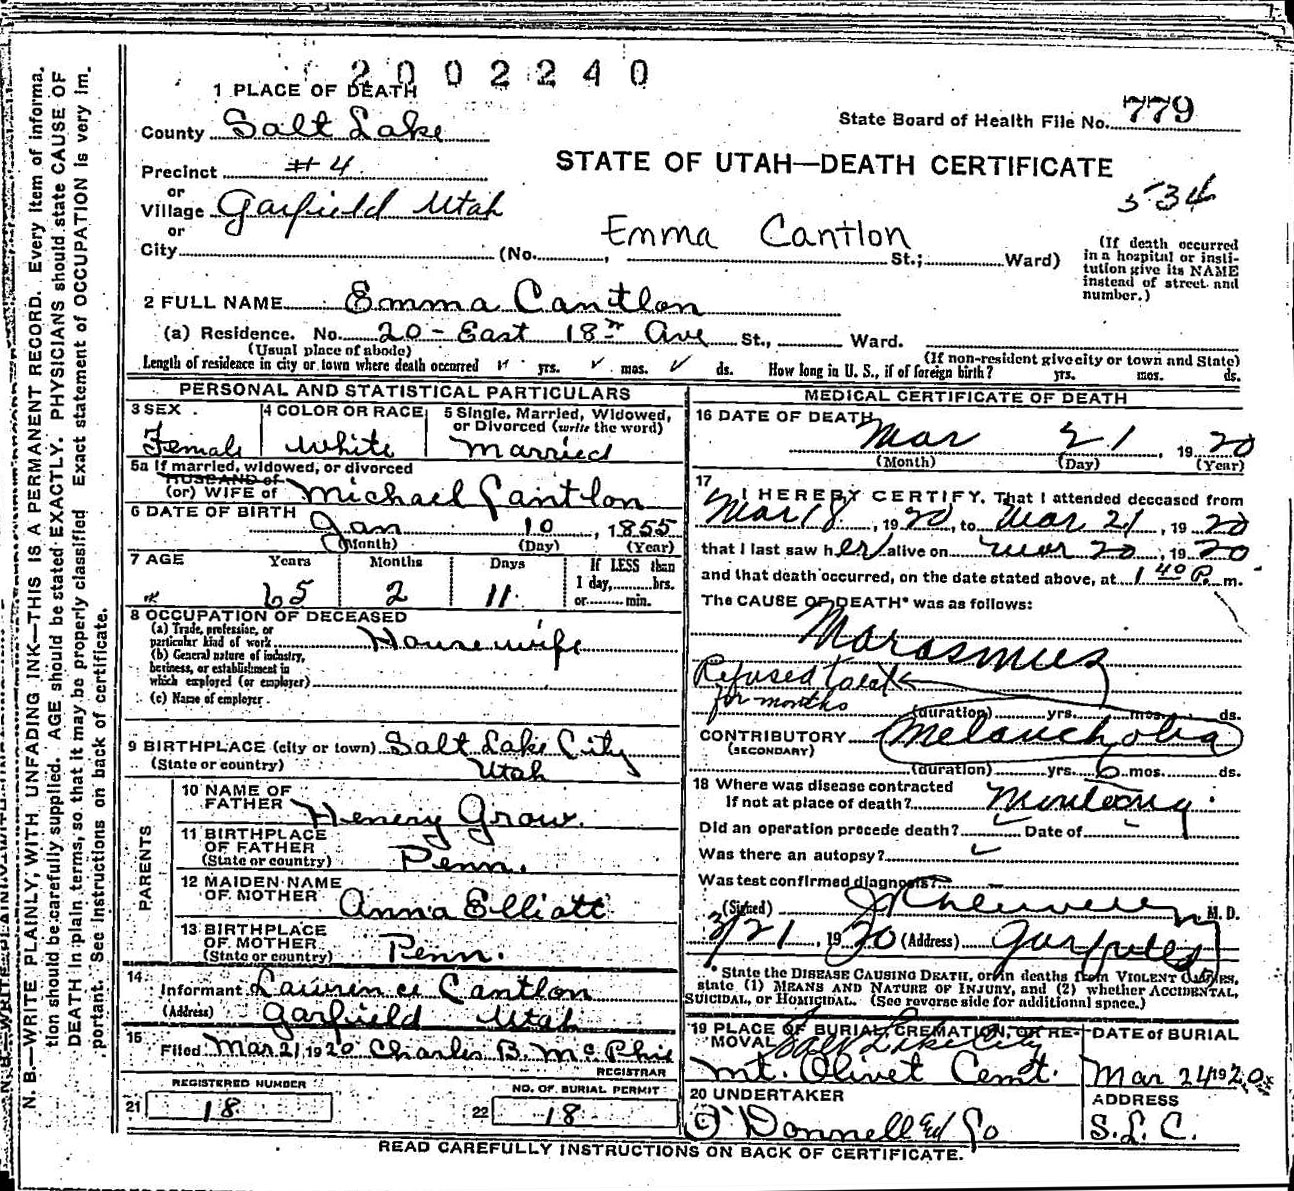 2002240
1 PLACE OF DEATH
County Salt Lake
State Board of Health File No. 779
Precinct #4
STATE OF UTAH—DEATH CERTIFICATE
or
Village Garfield Utah
534
or
City (No. , Emma Cantlon St.; Ward)
(If death occurred
in a hospital or insti-
tution give its NAME
instead of street and
number.)
2 FULL NAME Emma Cantlon
(a) Residence. No. 20 - East 18th Ave St., Ward.
(Usual place of abode)
(If non-resident give city or town and State)
Length of residence in city or town where death occurred yrs. mos. ds. How long in U. S., if of foreign birth? yrs. mos. ds.
PERSONAL AND STATISTICAL PARTICULARS
3 SEX
Female
4 COLOR OR RACE
White
5 Single, Married, Widowed,
or Divorced (write the word)
Married
5a If married, widowed, or divorced
HUSBAND of
(or) WIFE of Michael Cantlon
6 DATE OF BIRTH
Jan 10, 1855
(Month) (Day) (Year)
7 AGE Years Months Days
65 2 11
If LESS than
1 day, hrs.
or min.
8 OCCUPATION OF DECEASED
(a) Trade, profession, or
particular kind of work Housewife
(b) General nature of industry,
business, or establishment in
which employed (or employer)
(c) Name of employer
9 BIRTHPLACE (city or town) Salt Lake City
(State or country) Utah
PARENTS
10 NAME OF
FATHER Henery Grow.
11 BIRTHPLACE
OF FATHER
(State or country) Penn.
12 MAIDEN NAME
OF MOTHER Anna Elliott
13 BIRTHPLACE
OF MOTHER
(State or country) Penn.
14
Informant Lawrence Cantlon
(Address) Garfield Utah
15
Filed Mar 21 1920 Charles B. McPhie
REGISTRAR
REGISTERED NUMBER
21 18
NO. OF BURIAL PERMIT
22 18
MEDICAL CERTIFICATE OF DEATH
16 DATE OF DEATH
Mar 21, 1920
(Month) (Day) (Year)
17
I HEREBY CERTIFY, That I attended deceased from
Mar 18, 1920, to Mar 21, 1920
that I last saw her alive on Mar 20, 1920
and that death occurred, on the date stated above, at 1 40 P. m.
The CAUSE OF DEATH* was as follows:
Marasmus
Refused to eat
for months
(duration) yrs. mos. ds.
CONTRIBUTORY Melancholia
(SECONDARY)
(duration) yrs. 6 mos. ds.
18 Where was disease contracted
If not at place of death?
Did an operation precede death? Date of
Was there an autopsy?
Was test confirmed diagnosis?
(Signed) M. D.
3/21, 1920 (Address) Garfield
*State the DISEASE CAUSING DEATH, or in deaths from VIOLENT CAUSES,
state (1) MEANS AND NATURE OF INJURY, and (2) whether ACCIDENTAL,
SUICIDAL, or HOMICIDAL. (See reverse side for additional space.)
19 PLACE OF BURIAL, CREMATION, OR RE-
MOVAL Salt Lake City
Mt. Olivet Cemt.
DATE of BURIAL
Mar 24 1920
20 UNDERTAKER
O'Donnell and Co
ADDRESS
S.L.C.
READ CAREFULLY INSTRUCTIONS ON BACK OF CERTIFICATE.
N. B.—WRITE PLAINLY, WITH UNFADING INK—THIS IS A PERMANENT RECORD. Every item of informa-
tion should be carefully supplied. AGE should be stated EXACTLY. PHYSICIANS should state CAUSE OF
DEATH in plain terms, so that it may be properly classified Exact statement of OCCUPATION is very im-
portant. See Instructions on back of certificate.